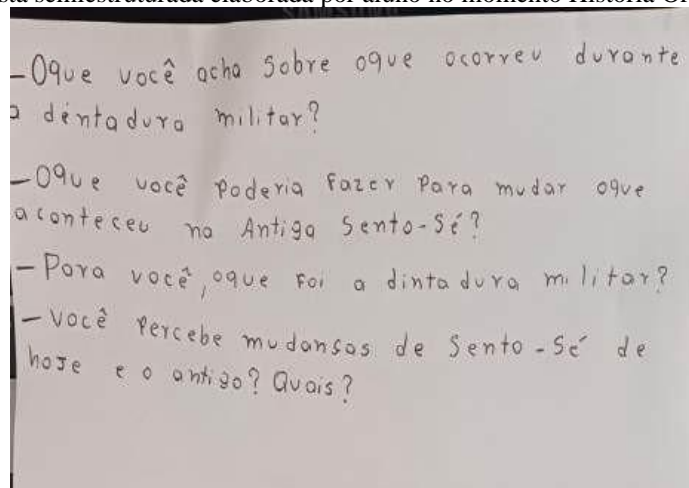 sta semiestruturada elaborada por aluno no momento História Or
-Oque você acha sobre oque ocorreu durante
a dentadura militar?
-Oque você poderia fazer para mudar oque
aconteceu na Antiga Sento-Sé?
-Para você, oque foi a dintadura militar?
-Você percebe mudansas de Sento-Sé de
hoje e o antigo? Quais?